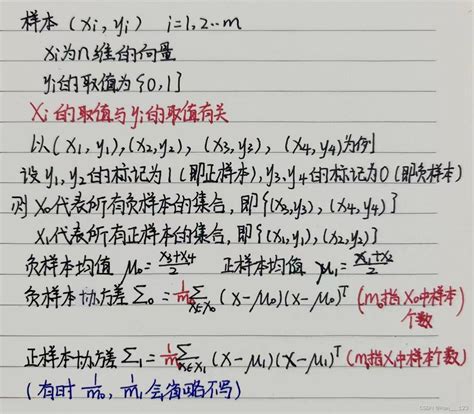 样本 (xi, yi) i=1,2..m
xi为n维的向量
yi的取值为{0,1]
Xi 的取值与yi的取值有关
以(x1, y1), (x2, y2), (x3, y3), (x4, y4)为例
设 y1, y2 的标记为1 (即正样本), y3, y4 的标记为0 (即负样本)
则 X0 代表所有负样本的集合, 即{(x3,y3), (x4,y4)]
X1 代表所有正样本的集合, 即{(x1,y1), (x2,y2)]
负样本均值 μ0 = (x3+x4)/2 正样本均值 μ1 = (x1+x2)/2
负样本协方差 Σ0 = 1/m0 Σ x∈X0 (x-μ0)(x-μ0)^T (m0指X0中样本
个数)
正样本协方差 Σ1 = 1/m1 Σ x∈X1 (x-μ1)(x-μ1)^T (m1指X1中样本个数)
(有时 1/m0, 1/m1 会省略不写)